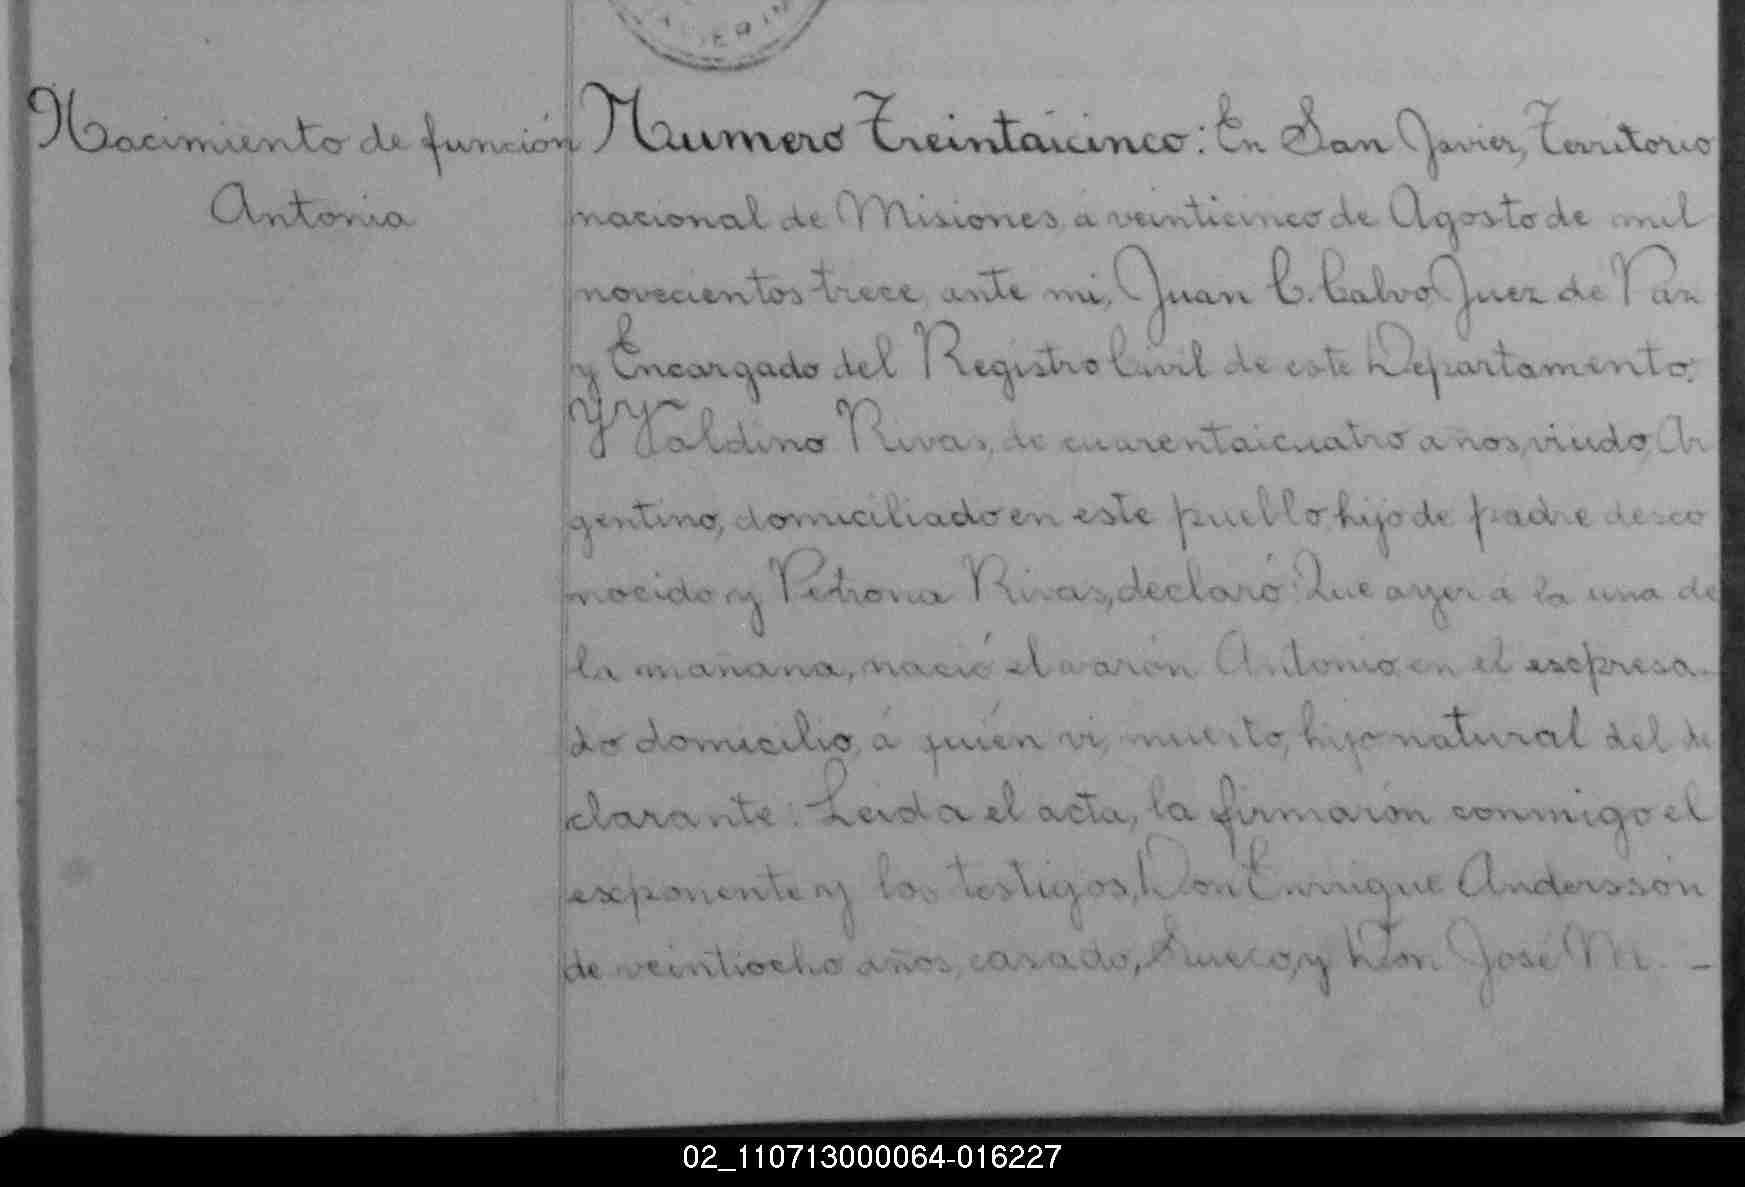 JAVIER
Nacimiento de función
Antonia
Numero Treintaicinco: En San Javier, Territorio
nacional de Misiones, á veinticinco de Agosto de mil
novecientos trece, ante mi, Juan C. Calvo, Juez de Paz
y Encargado del Registro Civil de este Departamento:
aldino Rivas, de cuarentaicuatro años, viudo, Ar
gentino, domiciliado en este pueblo, hijo de padre desco
nocido y Petrona Rivas, declaró: Que ayer á la una de
la mañana, nació el varón Antonio en el escpresa-
do domicilio, á quién vi, muerto, hijo natural del de
clarante: Leida el acta, la firmarón conmigo el
exponente y los testigos, Don Enrrique Anderssón
de veintiocho años, casado, Sueco, y Don José M. -
02_110713000064-016227